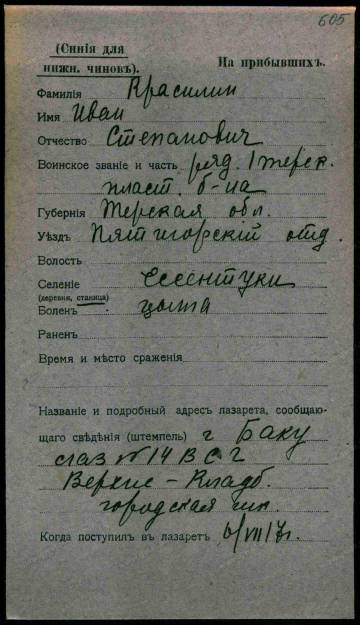 605
(Синія для
нижн. чиновъ).
На прибывшихъ.
Фамилія Красилин
Имя Иван
Отчество Степанович
Воинское званіе и часть ряд. 1 терск.
пласт. б-на
Губернія Терская обл.
Уѣздъ Пятигорскій отд.
Волость
Селеніе Ессентуки
(деревня, станица)
Боленъ цынга
Раненъ
Время и мѣсто сраженія
Названіе и подробный адресъ лазарета, сообщаю-
щаго свѣдѣнія (штемпель) г Баку
лаз № 14 В С Г
Верхне - Кладб.
городская
Когда поступил въ лазаретъ 6/VII 17г.